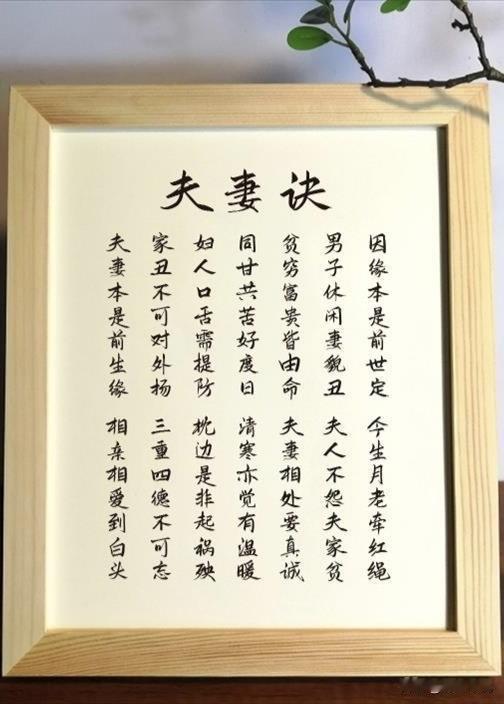 夫妻诀
因缘本是前世定
今生月老牵红绳
男子休闲妻貌丑
夫人不怨夫家贫
贫穷富贵皆由命
夫妻相处要真诚
同甘共苦好度日
清寒亦觉有温暖
妇人口舌需提防
枕边是非起祸殃
家丑不可对外扬
三重四德不可忘
夫妻本是前生缘
相亲相爱到白头